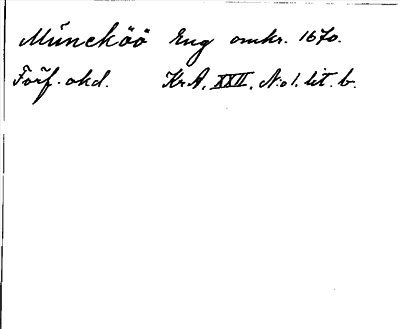 Müncköö Eng omkr. 1670.
Förf. okd. Kr.A. XXII. No 1. lit. b.